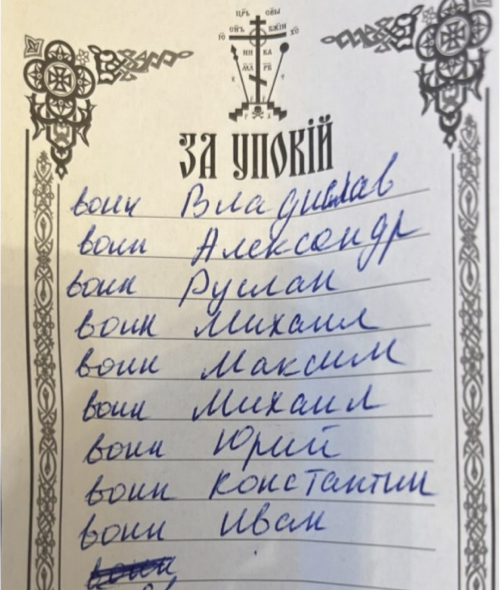 ЦРЬ СВЫ
СНЪ БЖІИ
ІС ХС
НИ КА
МЛ РБ
К Т
Г А
ЗА УПОКІЙ
воин Владислав
воин Александр
воин Руслан
воин Михаил
воин Максим
воин Михаил
воин Юрий
воин Константин
воин Иван